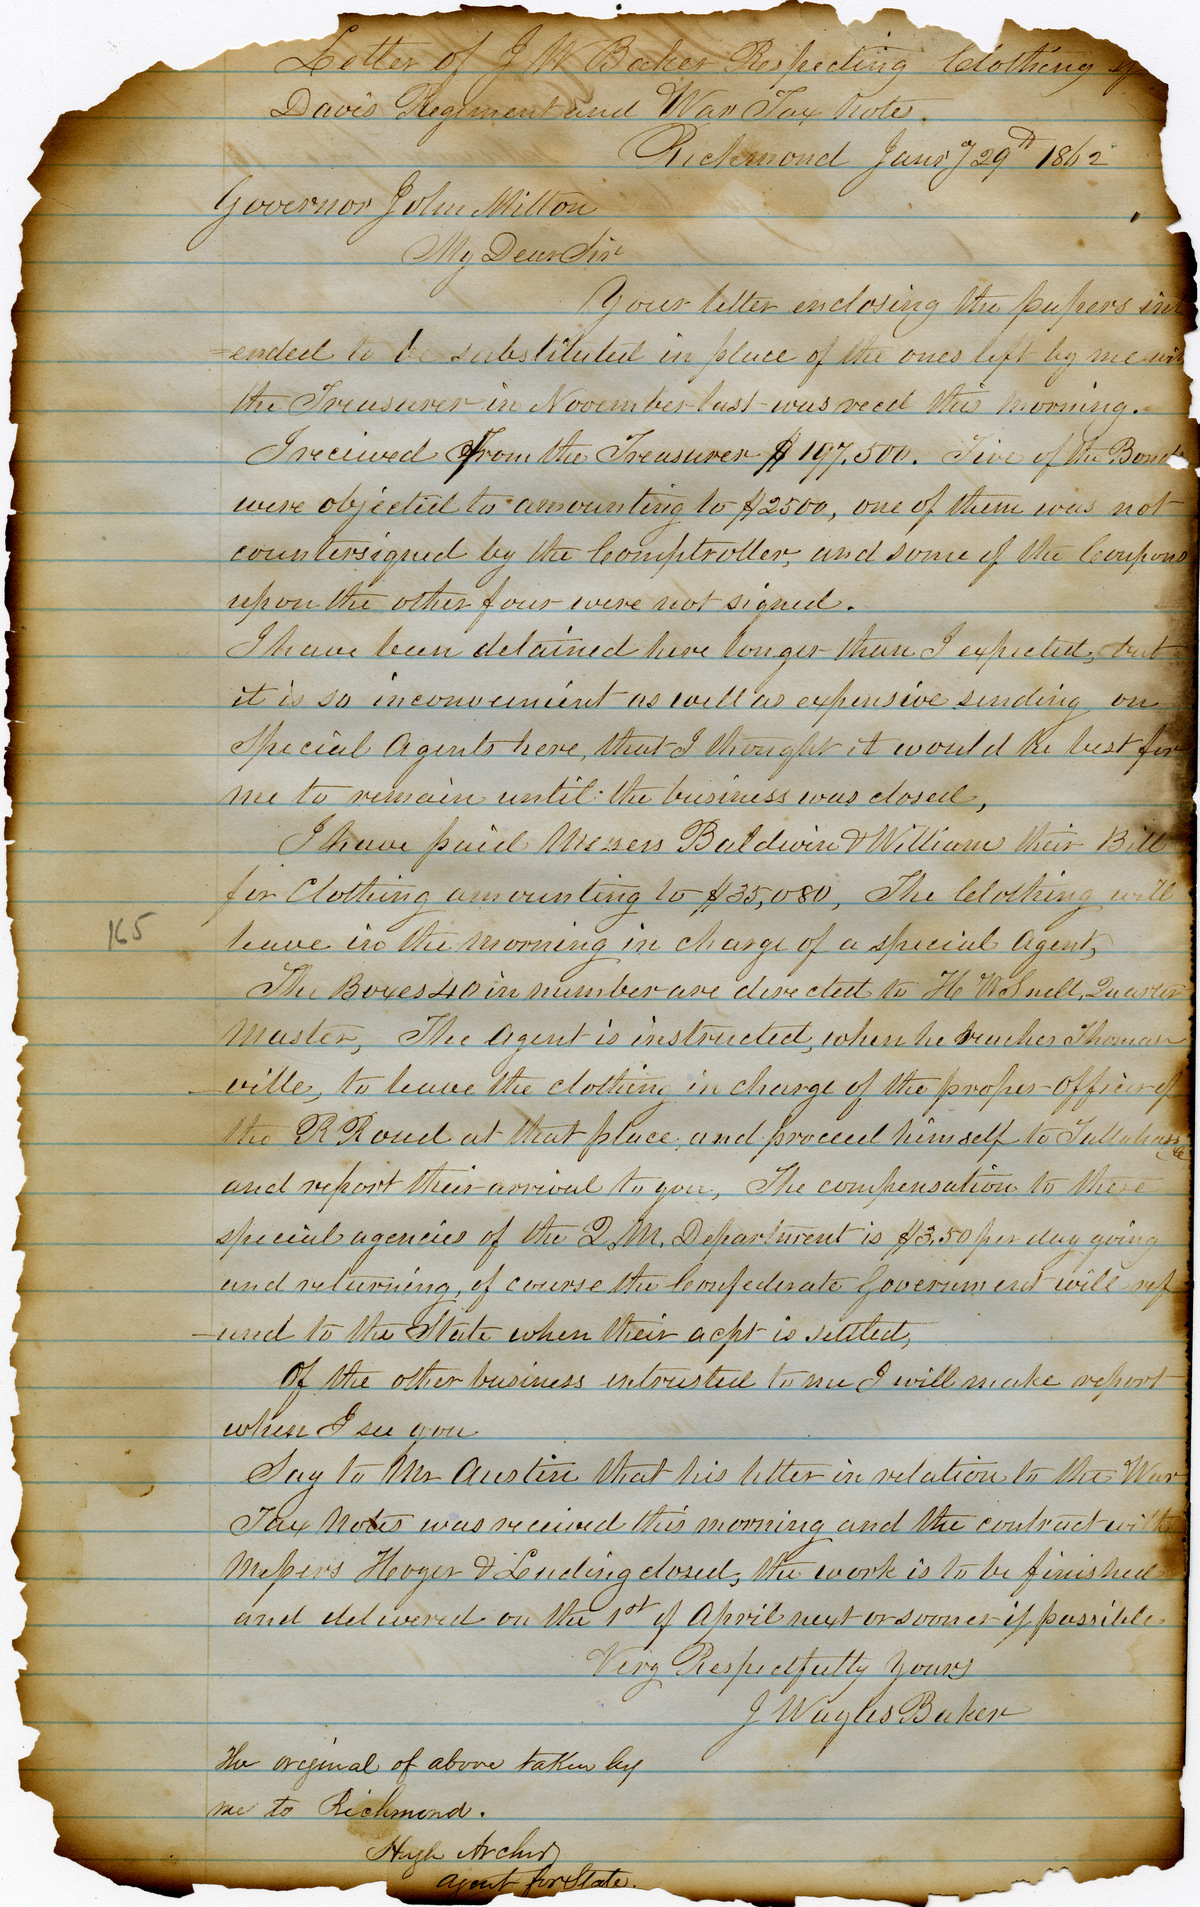 Letter of J W Baker Respecting Clothing of
Davis Regiment and War Tax Notes.
Richmond Jany 29th 1862
Governor John Milton
My Dear Sir
Your letter enclosing the papers int
=ended to be substituted in place of the ones left by me with
the Treasurer in November last was recd this morning.
I recieved from the Treasurer $197,500. Five of the Bonds
were objected to amounting to $2500, one of them was not
countersigned by the Comptroller, and some of the Coupons
upon the other four were not signed.
I have been detained here longer than I expected, but
it is so inconvenient as well as expensive sending on
Special Agents here, that I thought it would be best for
me to remain until the business was closed,
I have paid Messrs Baldwin & William their Bill
for Clothing amounting to $35,080, The Clothing will
165
leave in the morning in charge of a special Agent,
The Boxes 40 in number are directed to H W Snell, Quarter
Master, The Agent is instructed, when he reaches Thomas
-ville, to leave the clothing in charge of the proper Officer of
the R Road at that place, and proceed himself to Tallahassee
and report their arrival to you, The compensation to these
special agencies of the Q, M, Department is $3,50 per day going
and returning, of course the Confederate Government will ref
-und to the State when their acpt is settled,
Of the other business intrusted to me I will make report
when I see you
Say to Mr Austin that his letter in relation to the War
Tax Notes was received this morning and the contract with
Messrs Hoyer & Luding closed, the work is to be finished
and delivered on the 1st of April next or sooner if possible
Very Respectfully Yours
J Wayles Baker
The original of above taken by
me to Richmond.
Hugh Archer
Agent for State.